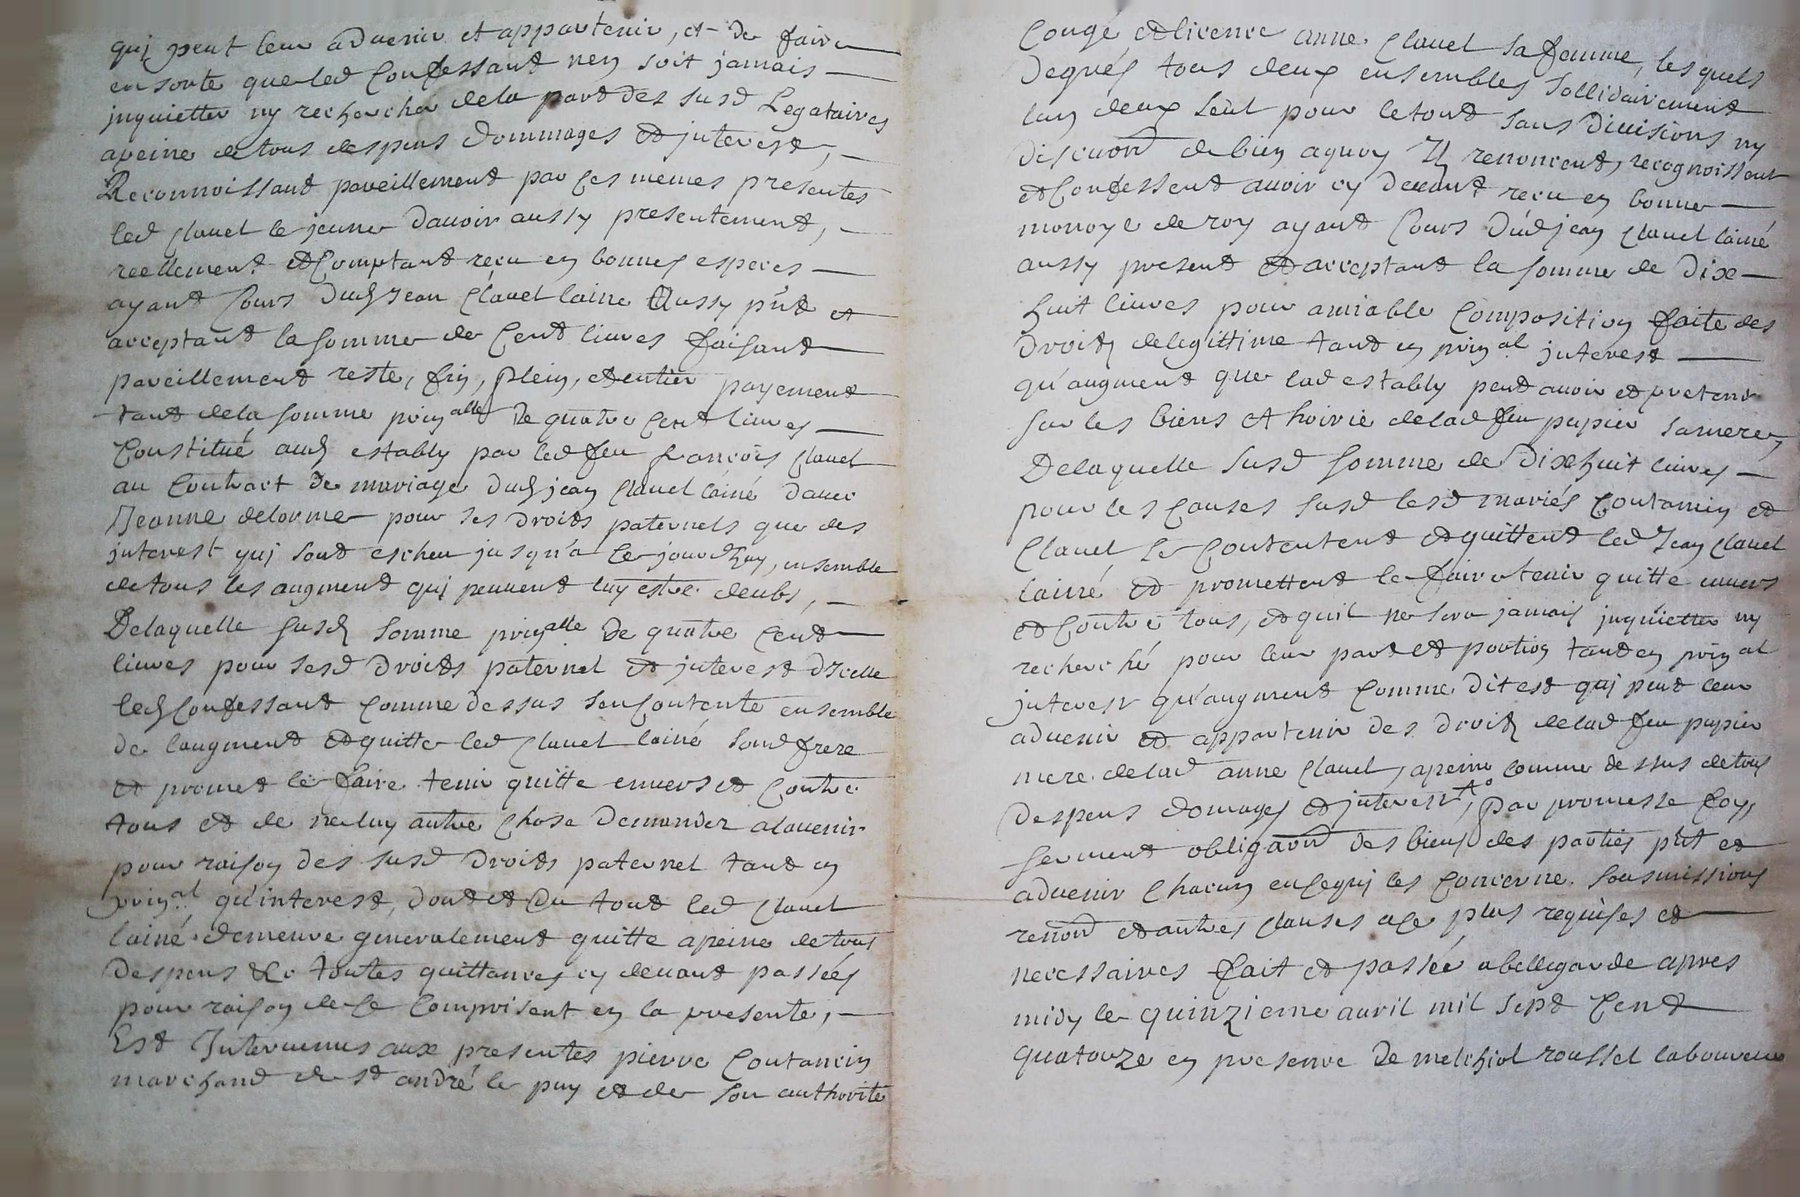 quj peut leur aduenir et appartenir, et de faire
en sorte que led Confessant n'en soit jamais
jnquietter ny rechercher dela part des susd Legataires
apeine de tous despens dommages et jnterest,
Reconnoissant pareillement par ces memes presentes
led Clauel le jeune dauoir aussy presentement,
reellement et Comptant recu en bonnes especes
ayant Cours dud Jean Clauel laine Aussy pnt et
acceptant la somme de Cent liures faisant
pareillement reste, fin, plein, et entier payement
tant dela somme prinalle de quatre Cent liures
Constitué aud estably par led feu francois Clauel
au Contract de mariage dud jean Clauel lainé dauec
Jeanne delorme pour ses droits paternels que des
jnterest quj sont escheu jusqu'a ce jourdhuy, ensemble
de tous les augment quj peuuent luy estre deubs,
Delaquelle susd somme prinalle de quatre Cent
liures pour sesd droits paternel et jnterest d'Icelle
led Confessant Comme dessus sen Contente ensemble
de laugment et quitte led Clauel lainé sond frere
et promet le faire tenir quitte enuers et Contre
tous et de ne luy autre Chose demander alauenir
pour raison des susd droits paternel tant en
prinal qu'interest, dont et du tout led Clauel
lainé demeure generalement quitte apeine de tous
despens &c toutes quittances cy deuant passées
pour raison de ce Comprisent en la presente,
Est Interuenus aux presentes pierre Coutancin
marchand de st andré le puy et de son authorité
Congé et licence anne Clauel sa femme, les quels
de gres tous deux ensembles sollidairement
lun deux seul pour le tout sans diuisions ny
discuon de bien aquoy Ils renoncent, recognoissent
et Confessent auoir cy deuant recu en bonne
monoye de roy ayant Cours dud jean Clauel lainé
aussy present et acceptant la somme de dix
huit liures pour amiable Composition faite des
droits delegittime tant en prinal jnterest
qu'augment que lad estably peut auoir et pretendre
sur les biens et hoirie delad feu papier sa mere,
Delaquelle susd somme de dixhuit liures
pour les Causes susd lesd mariés Coutancin et
Clauel se Contentent et quittent led Jean Clauel
lainé et promettent le faire tenir quitte enuers
et Contre tous, et quil ne sera jamais jnquietter ny
recherché pour leur part et portion tant en prinal
jnterest qu'augment Comme dit est quj peut leur
aduenir et appartenir des droits delad feu papier
mere delad anne Clauel, apeine comme dessus de tous
despens domages et jnterest, par promesse foy,
serment obligaon des biens des parties pnt et
aduenir Chacun en ce quj les Concerne. sousmissions
renon et autres Clauses a ce plus requises et
necessaires fait et passé a bellegarde apres
midy le quinzieme auril mil sept Cent
quatorze en presence de melchiol roussel laboureur